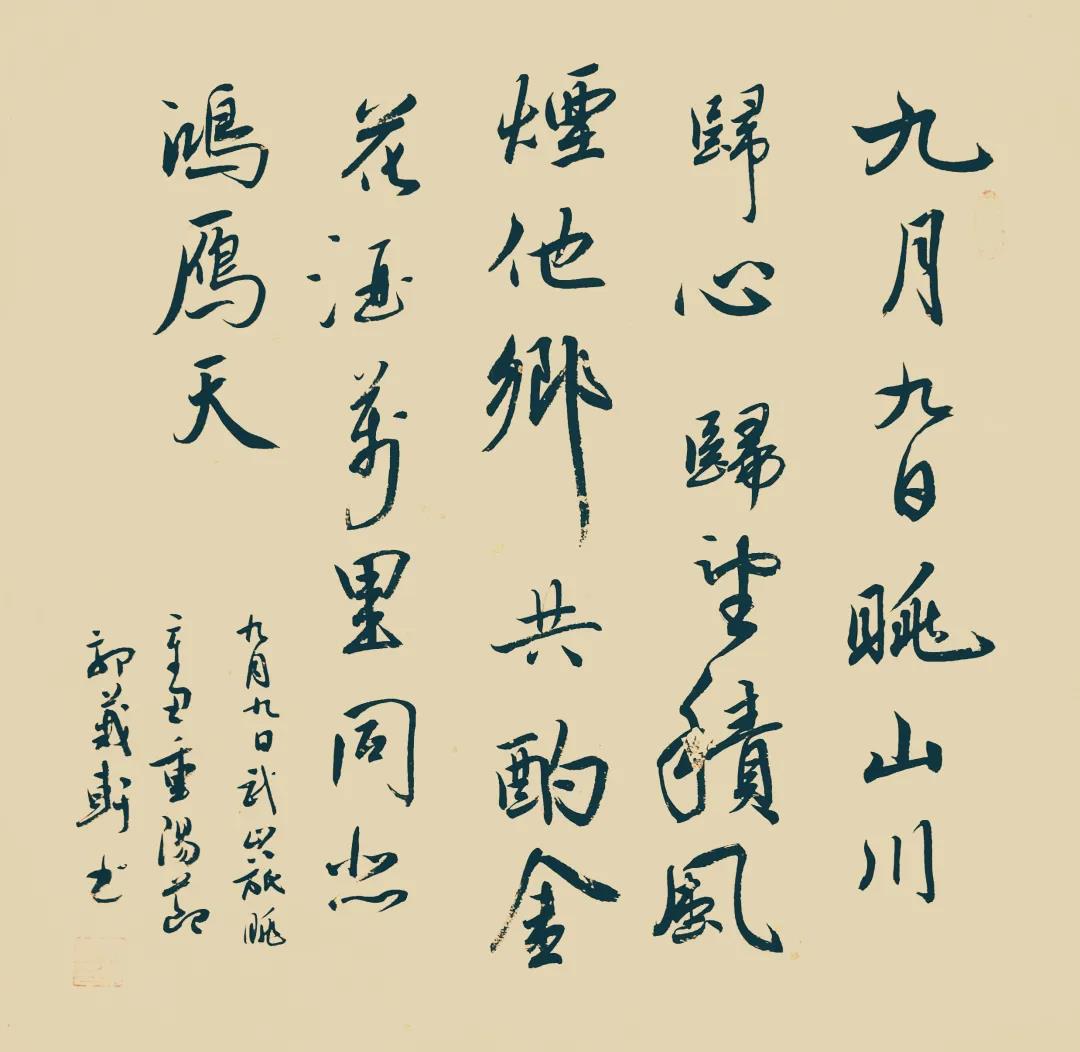 九月九日眺山川
歸心歸望積風
煙他鄉共酌金
花酒萬里同悲
鴻鴈天
九月九日武山旅眺
辛丑重陽節
郭義軒书